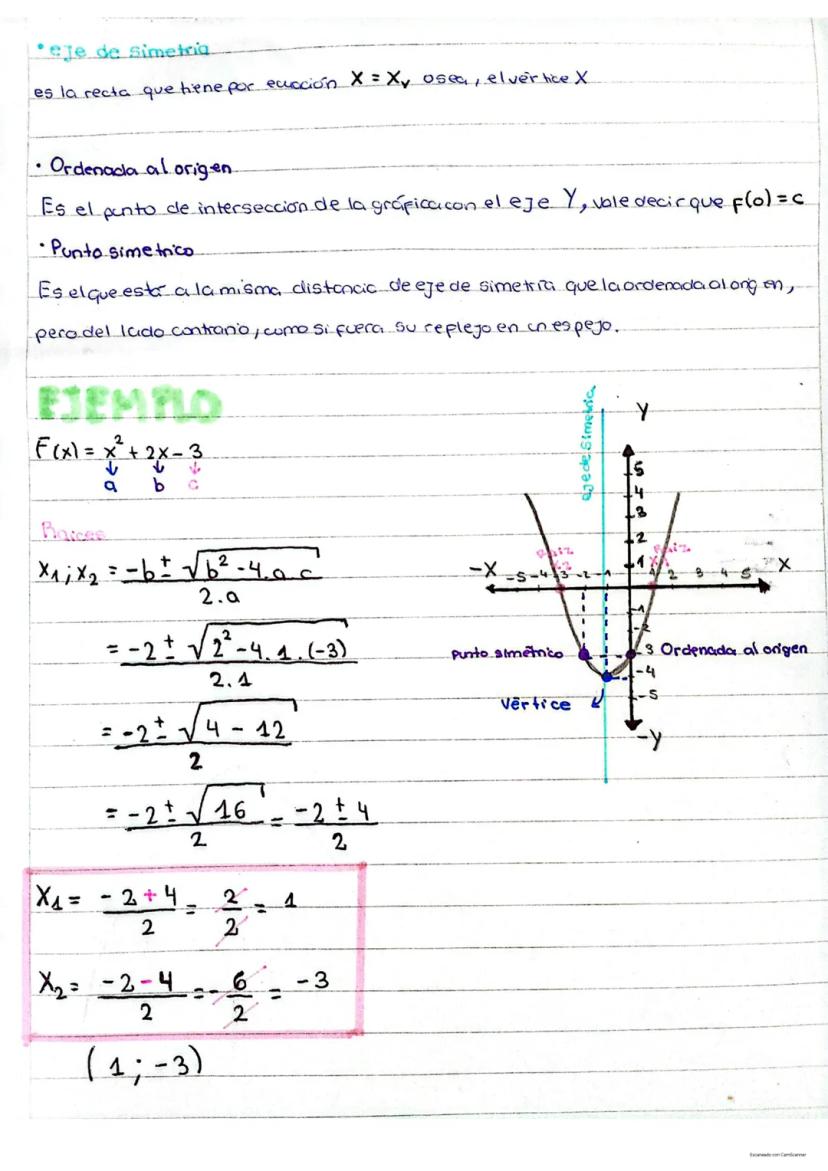 • eje de simetria
es la recta que tiene por ecucción X = Xᵥ osea, el vértice X
• Ordenada al origen
Es el punto de intersección de la gráfica con el eje Y, vale decir que F(0) = C
• Punto simetrico
Es el que está a la misma distancia de eje de simetría que la ordenada al origen,
pero del lado contrario, como si fuera su replejo en un espejo.
EJEMPLO
F(x) = x² + 2x - 3
a b c
Raices
X₁ ; X₂ = -b ± √(b² - 4.a.c) / 2.a
= -2 ± √(2² - 4.1.(-3)) / 2.1
= -2 ± √(4 - 12) / 2
= -2 ± √16 / 2 = -2 ± 4 / 2
X₁ = -2 + 4 / 2 = 2/2 = 1
X₂ = -2 - 4 / 2 = - 6/2 = -3
(1 ; -3)
eje de simetria
Y
5
4
3
2
1
Raiz X₂
Raiz X₁
-X -5 -4 -3 -2 -1 1 2 3 4 5 X
-1
-2
Punto simétrico -3 Ordenada al origen
-4
-5
Vértice
-Y
Escaneado con CamScanner